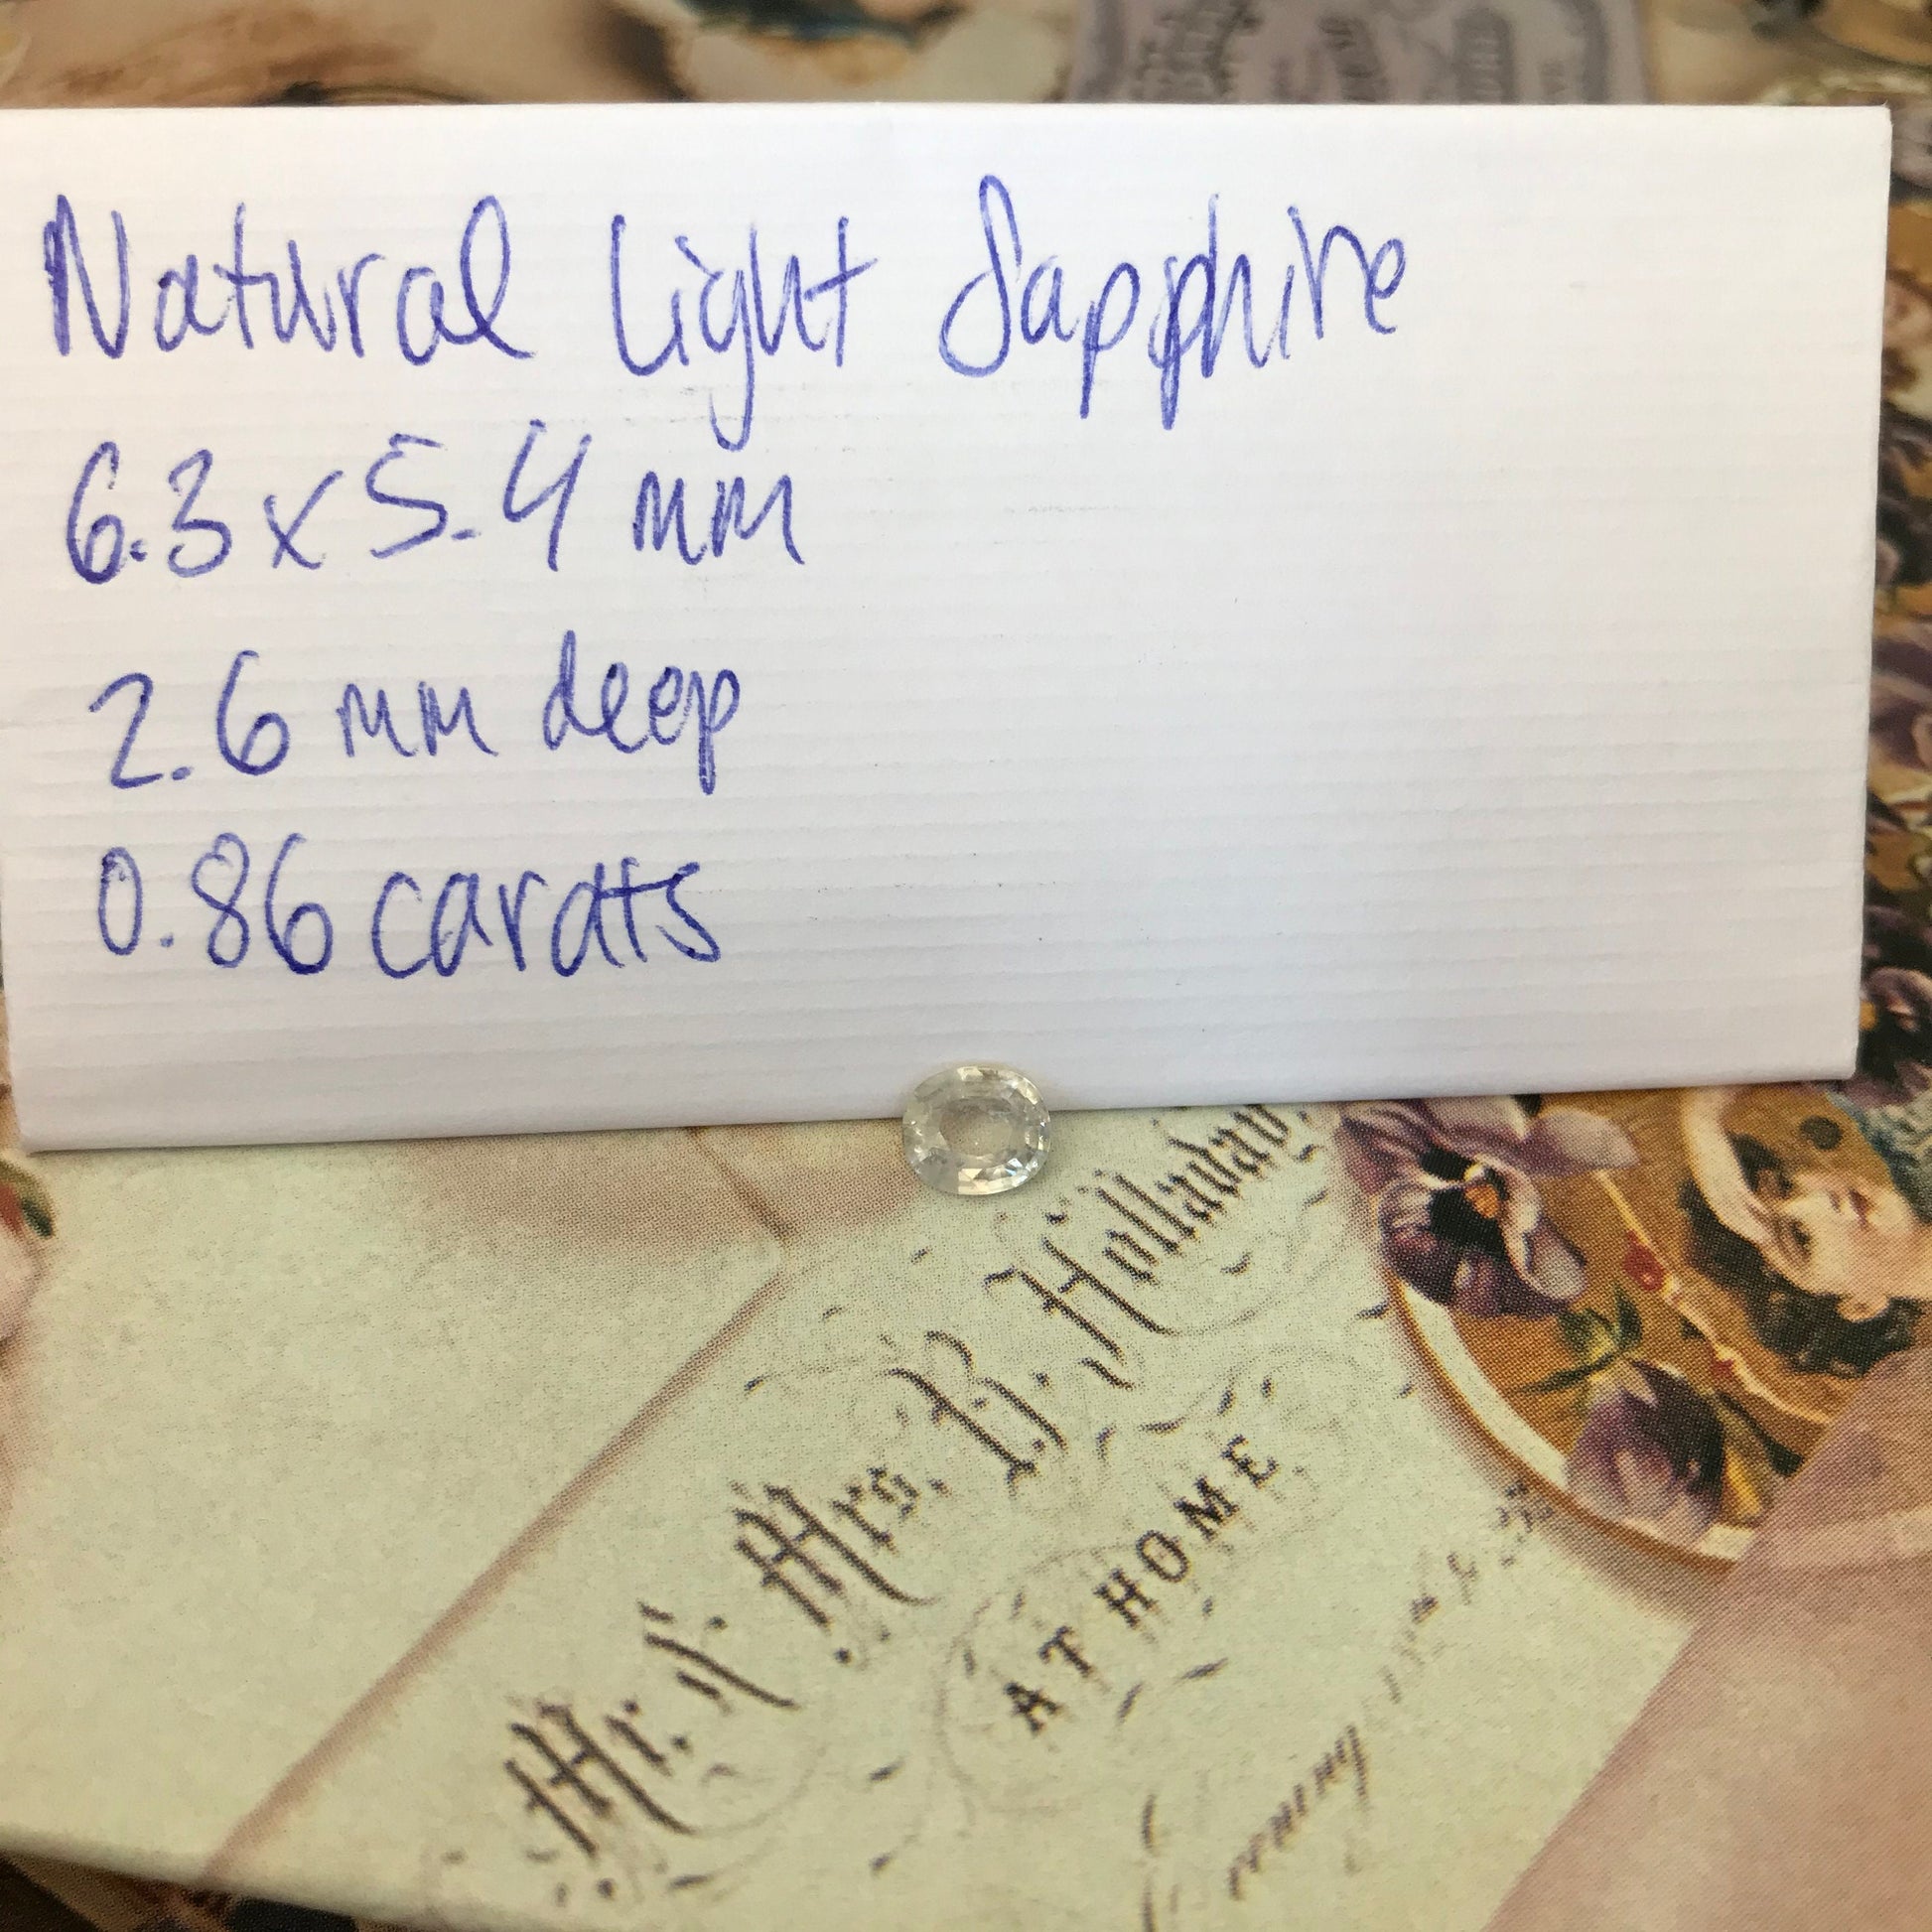 Natural Light Sapphire
6.3 x 5.4 mm
2.6 mm deep
0.86 carats
Mr. & Mrs. B. Holladay
AT HOME